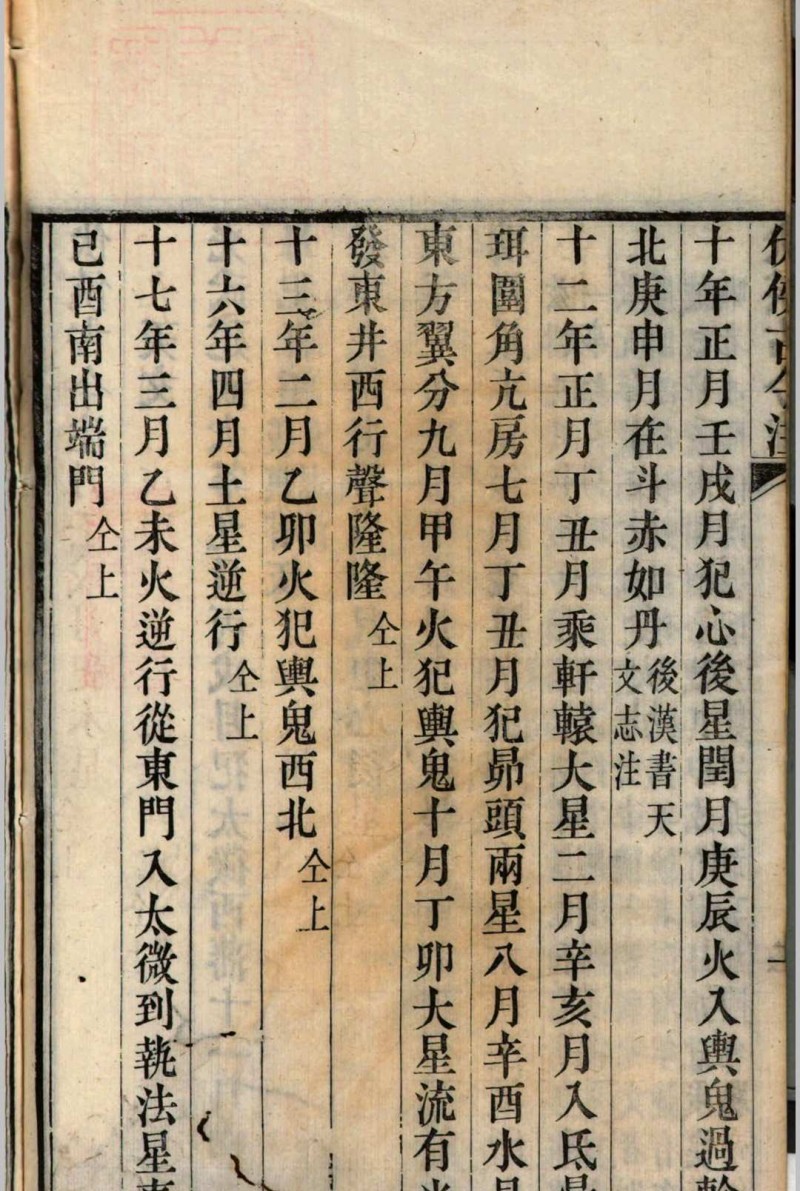 伏侯古今注
十年正月壬戌月犯心後星閏月庚辰火入輿鬼過軫
北庚申月在斗赤如丹後漢書天文志注
十二年正月丁丑月乘軒轅大星二月辛亥月入氐
珥圍角亢房七月丁丑月犯昴頭兩星八月辛酉水
東方翼分九月甲午火犯輿鬼十月丁卯大星流有
發東井西行聲隆隆仝上
十三年二月乙卯火犯輿鬼西北仝上
十六年四月土星逆行仝上
十七年三月乙未火逆行從東門入太微到執法星
己酉南出端門仝上